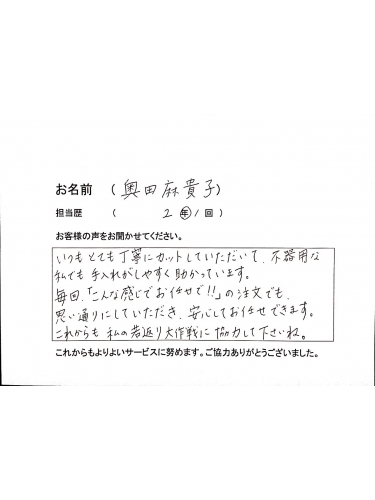 お名前 （奥田麻貴子）
担当歴 （ 2 年/回）
お客様の声をお聞かせてください。
いつもとても丁寧にカットしていただいて、不器用な
私でも手入れがしやすく助かっています。
毎回、「こんな感じでお任せで!!」の注文でも、
思い通りにしていただき、安心してお任せできます。
これからも私の若返り大作戦に協力して下さいね。
これからもよりよいサービスに努めます。ご協力ありがとうございました。